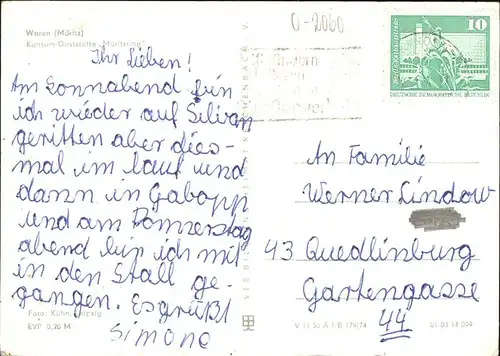 Waren (Müritz)
Konsum-Gaststätte "Müritzring"
Ihr Lieben!
Am Sonnabend bin
ich wieder auf Silvan
geritten aber dies-
mal im lauf und
dann in Gabopp
und am Donnerstag
abend bin ich mit
in den Stall ge-
gangen. Es grüßt
Simone
Foto: Kühn, Leipzig
EVP 0,20 M
VEB BILD
REICHENBACH I. V.
V 11 50 A 1/B 179/74
01 03 14 009
0-2060
10
DEUTSCHE DEMOKRATISCHE REPUBLIK
An Familie
Werner Lindow
43 Quedlinburg
Gartengasse
44